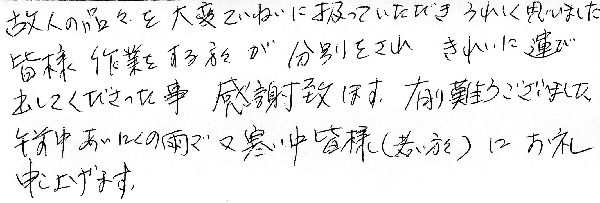 故人の品々を大変ていねいに扱っていただきうれしく思いました
皆様 作業をする方が 分別をされ きれいに運び
出してくださった事 感謝致します. 有り難うございました
午前中あいにくの雨で又寒い中皆様(若い方)にお礼
申し上げます.